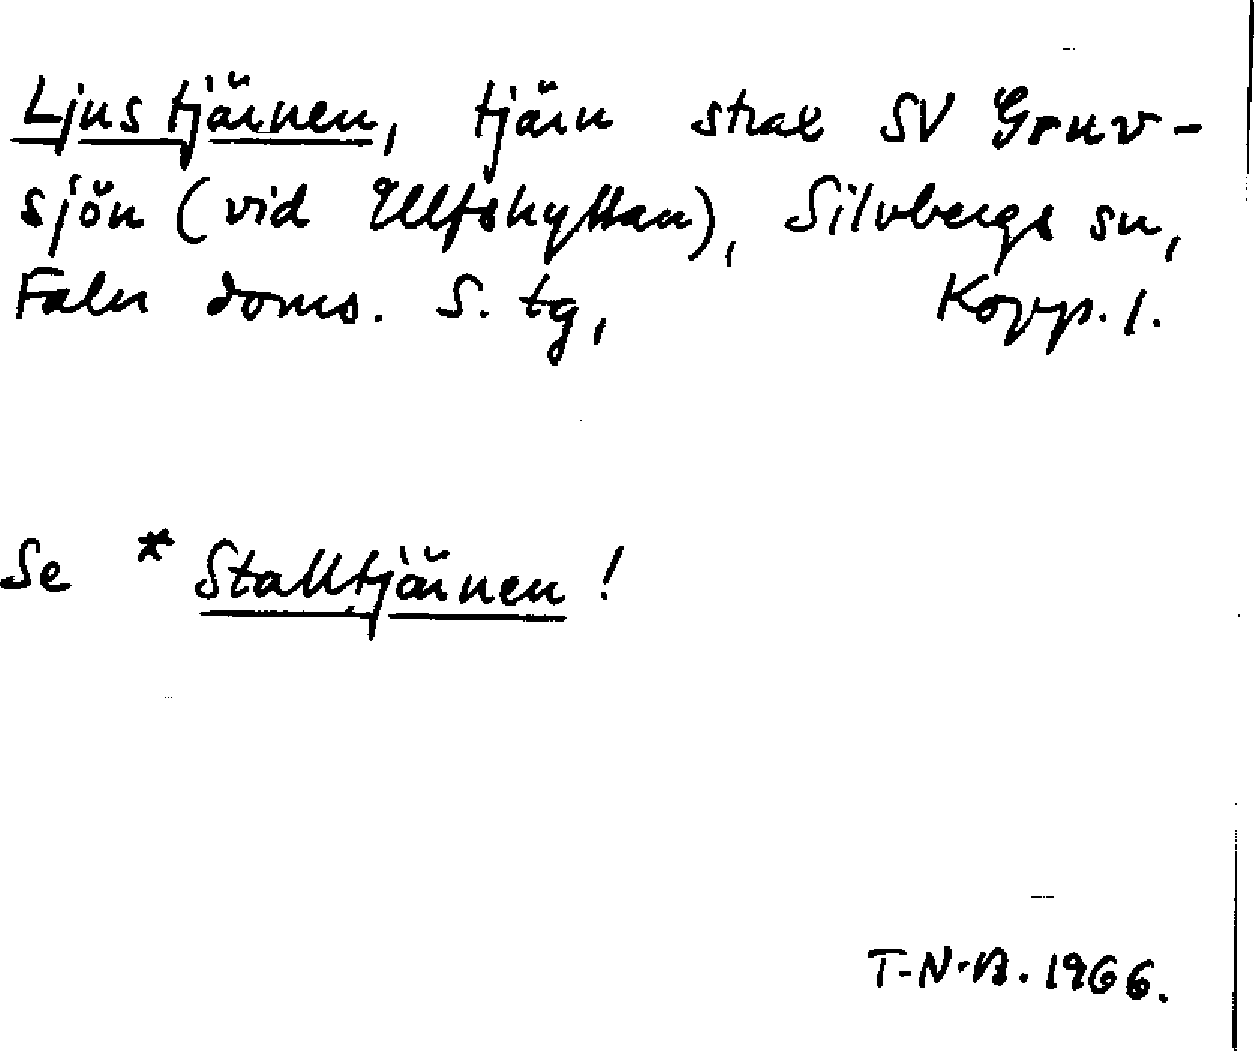 Ljustjärnen, tjärn strax SV Gruv-
sjön (vid Ulfshyttan), Silvbergs sn,
Falu doms. S. tg, Kopp. l.
Se * Stalltjärnen!
T-N-A. 1966.